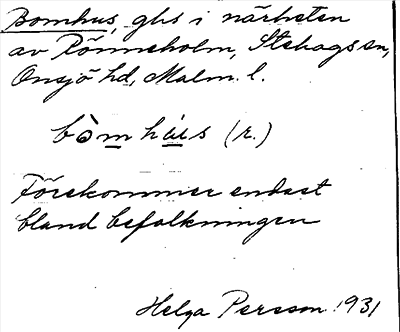 Bomhus, ghs i närheten
av Rönneholm, Stehags sn,
Onsjö hd, Malm. l.
bòmhús (r.)
Förekommer endast
bland befolkningen
Helga Persson 1931